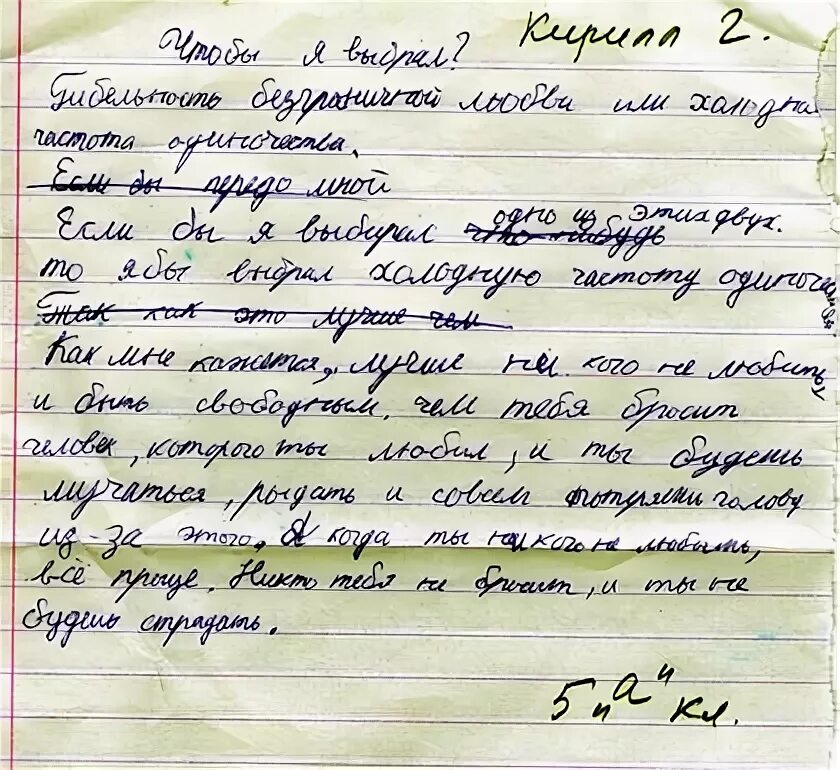 Кирилл Г.
Чтобы я выбрал?
Гибельность безграничной любви или холодная
частота одиночества.
Если бы передо мной
Если бы я выбирал что-нибудь одно из этих двух.
то я бы выбрал холодную частоту одиночества
Так как это лучше чем
Как мне кажется, лучше ни кого не любить,
и быть свободным, чем тебя бросит
человек, которого ты любил, и ты будешь
мучаться, рыдать и совсем потеряеш голову
из-за этого. А когда ты никого не любить,
всё проще. Никто тебя не бросит, и ты не
будешь страдать.
5 "а" кл.